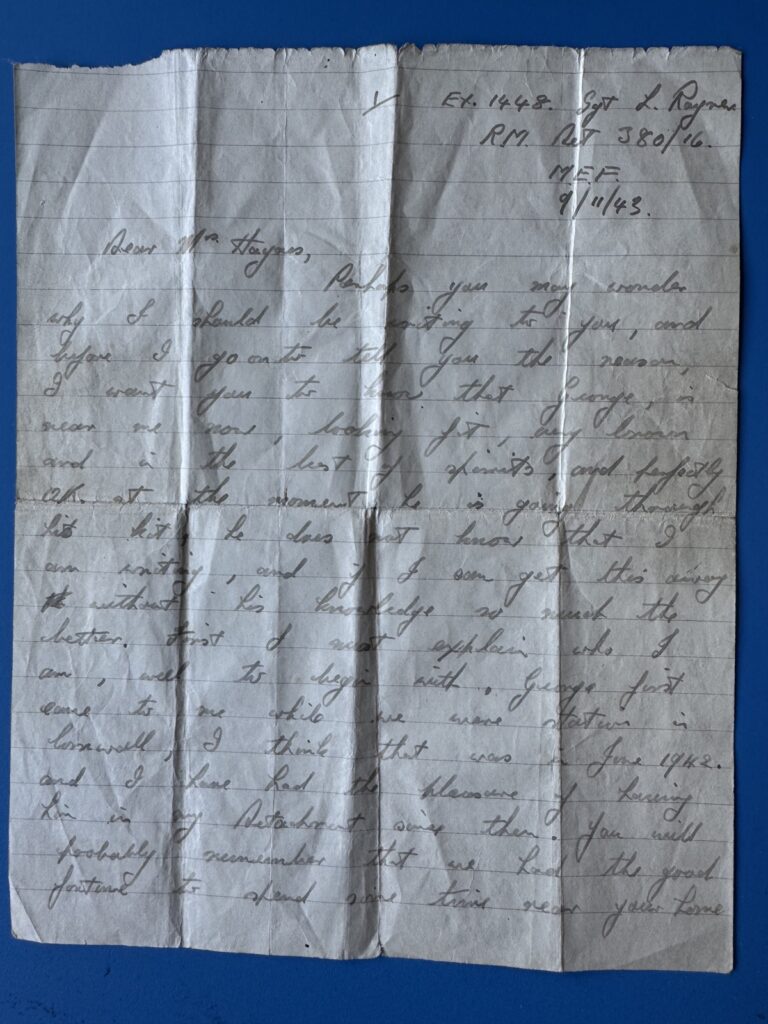 Ex. 1448. Sgt L. Rayner
R.M. Det 380/16.
M.E.F.
9/11/43.
Dear Mrs Haynes,
Perhaps you may wonder
why I should be writing to you, and
before I go on to tell you the reason,
I want you to know that George, is
near me now, looking fit, very brown
and in the best of spirits, and perfectly
O.K. at the moment he is going through
his kit, he does not know that I
am writing, and if I can get this away
without his knowledge so much the
better. First I must explain who I
am, well to begin with, George first
came to me while we were station in
Cornwall, I think that was in June 1942.
and I have had the pleasure of having
him in my Detachment since then. You will
probably remember that we had the good
fortune to spend some time near your home